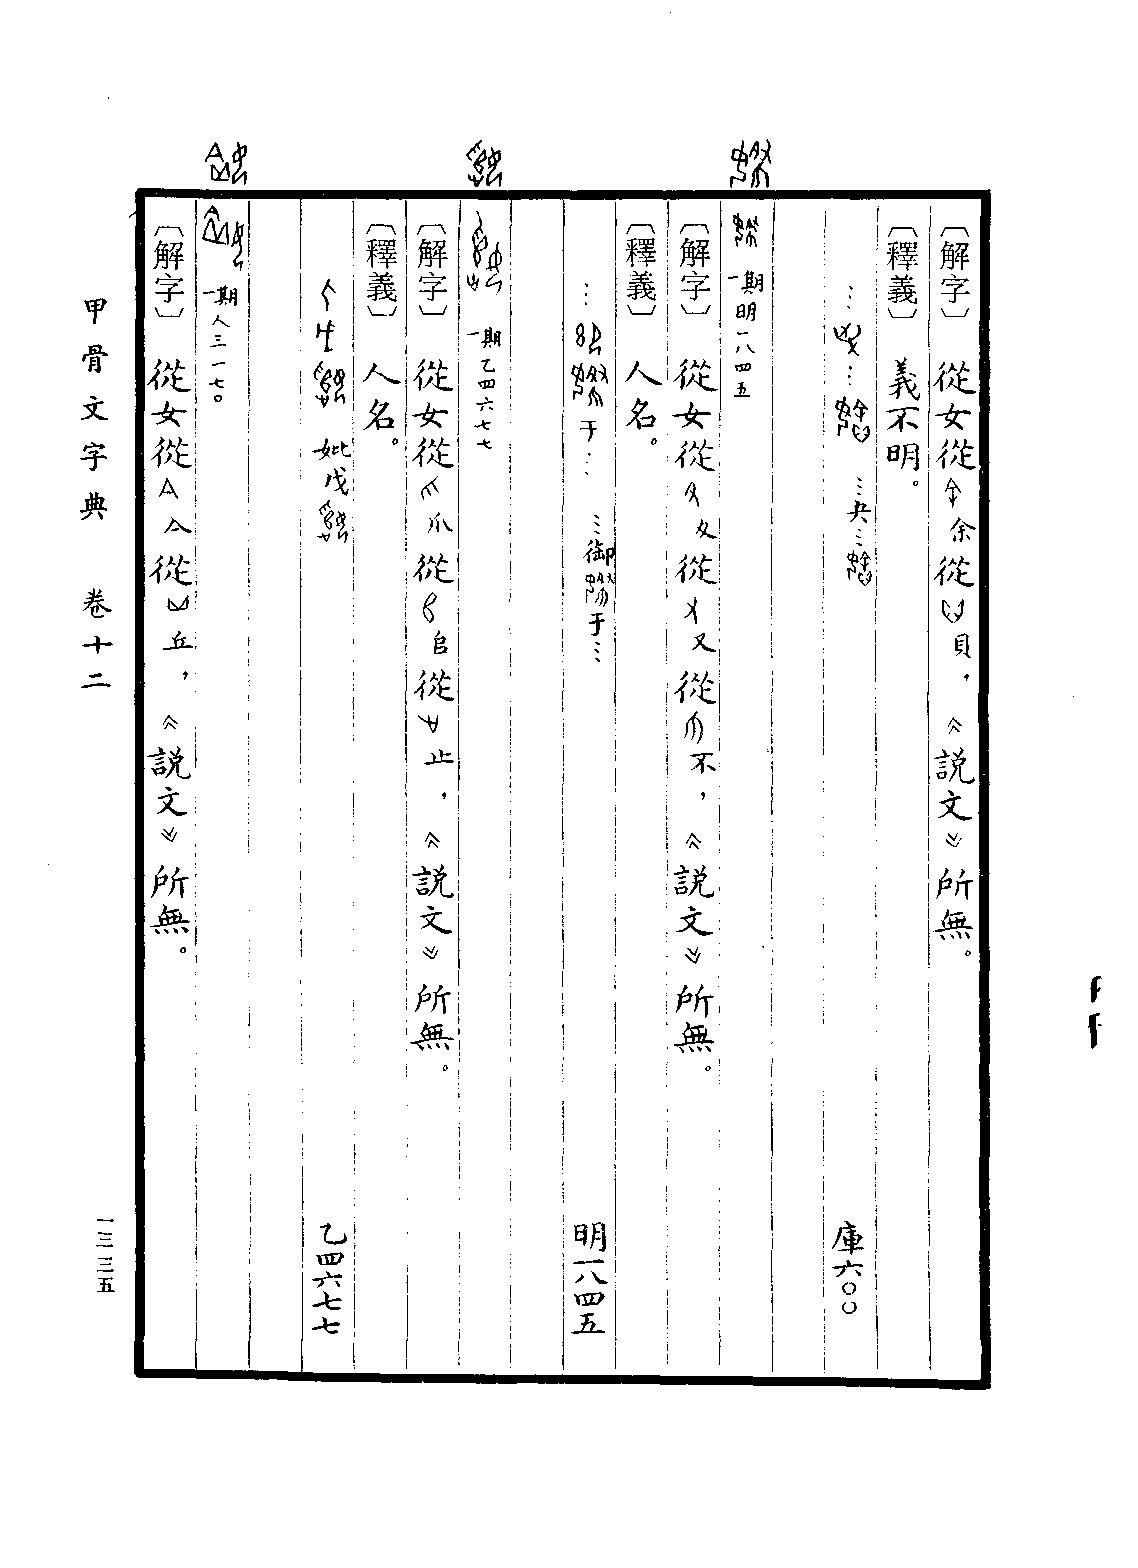 〔解字〕 從女從余從貝，《説文》所無。
〔釋義〕 義不明。
…… 庫六〇〇
一期 明一八四五
〔解字〕 從女從夊從又從不，《説文》所無。
〔釋義〕 人名。
…于… …御…于… 明一八四五
一期 乙四六七七
〔解字〕 從女從爪從㠯從止，《説文》所無。
〔釋義〕 人名。
妣戊 乙四六七七
一期 人三一七〇
〔解字〕 從女從亼從丘，《説文》所無。
甲骨文字典 卷十二
一三三五